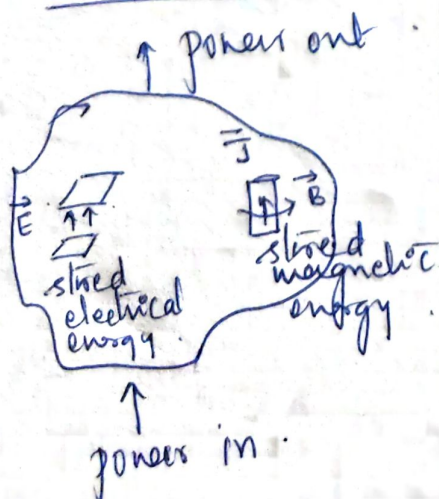 power out.
J
E
B
stored
electrical
energy.
stored
magnetic
energy.
power in.